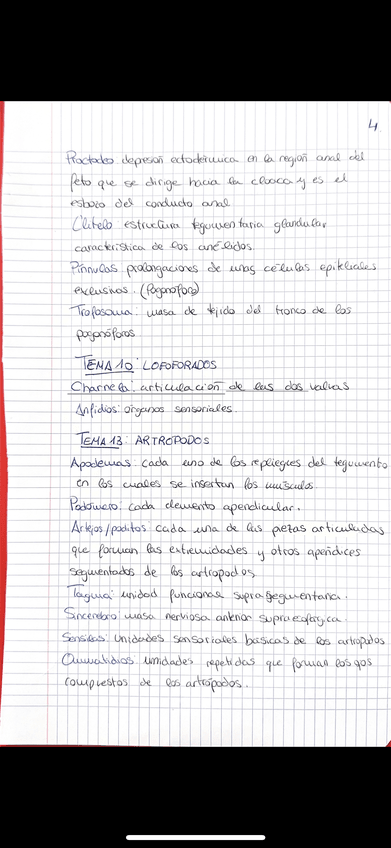 4.
Proctodeo depresión ectodérmica en la región anal del
feto que se dirige hacia la cloaca y es el
esbozo del conducto anal
Clitelo estructura tegumentaria glandular
característica de los anélidos.
Pínnulas prolongaciones de unas células epiteliales
exclusivas. (Pogonóforos)
Trofosoma: masa de tejido del tronco de los
pogonóforos
TEMA 10: LOFOFORADOS
Charnela: articulación de las dos valvas
Anfidios: órganos sensoriales.
TEMA 13: ARTRÓPODOS
Apodemas: cada uno de los repliegues del tegumento
en los cuales se insertan los músculos.
Podómero: cada elemento apendicular.
Artejos/poditos cada una de las piezas articuladas
que forman las extremidades y otros apéndices
segmentados de los artropodos
Tagma: unidad funcional suprasegmentaria.
Sincerebro: masa nerviosa anterior supraesofágica.
Sensilas: unidades sensoriales básicas de los artrópodos
Ommatidios unidades repetidas que forman los ojos
compuestos de los artrópodos.